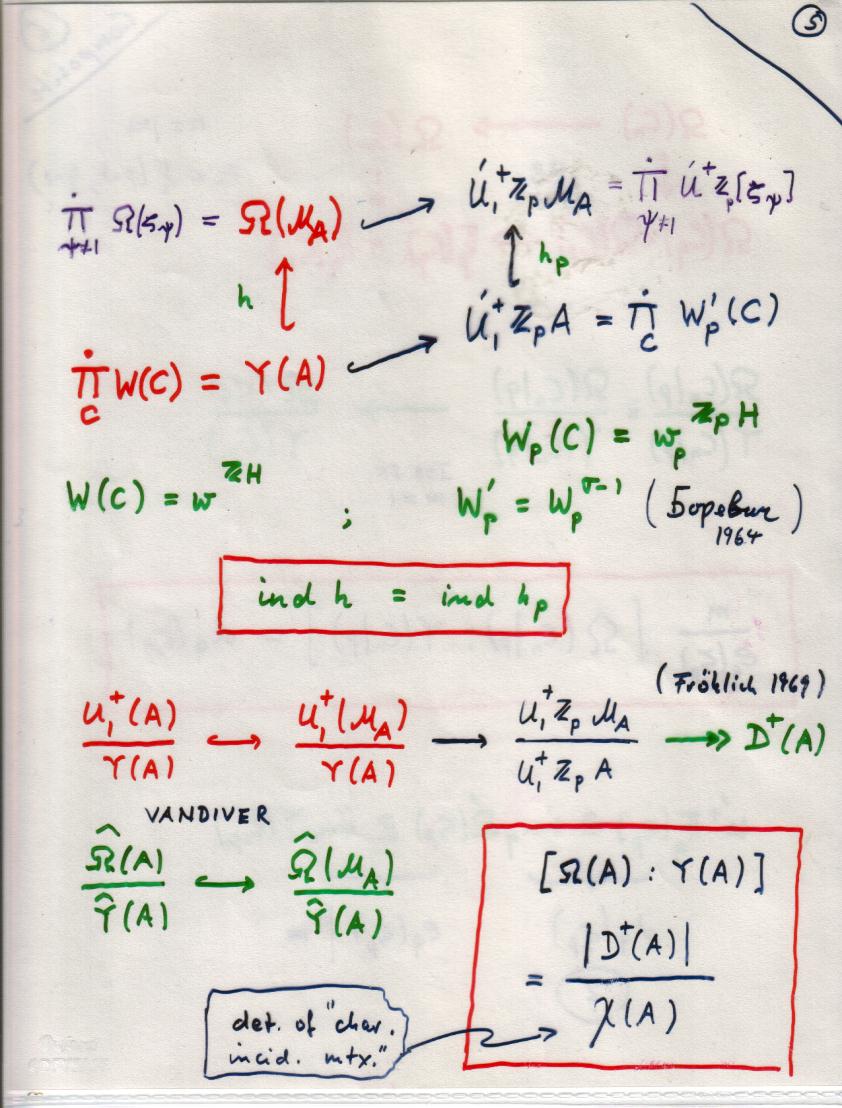 5
∏̇_{ψ≠1} Ω(ζ_ψ) = Ω(M_A) → Ú₁⁺ ℤ_p M_A = ∏̇_{ψ≠1} Ú⁺ ℤ_p[ζ_ψ]
h ↑ ↑ h_p
∏̇_C W(C) = Υ(A) → Ú₁⁺ ℤ_p A = ∏̇_C W_p′(C)
W_p(C) = w_p^{ℤ_p H}
W(C) = w^{ℤH} ; W_p′ = W_p^{σ-1} (Боревич 1964)
ind h = ind h_p
(Fröhlich 1969)
U₁⁺(A)/Υ(A) ↪ U₁⁺(M_A)/Υ(A) → U₁⁺ ℤ_p M_A / U₁⁺ ℤ_p A ↠ D⁺(A)
VANDIVER
Ω̂(A)/Υ̂(A) ↪ Ω̂(M_A)/Υ̂(A)
[Ω(A) : Υ(A)]
= |D⁺(A)| / χ(A)
det. of "char.
incid. mtx."